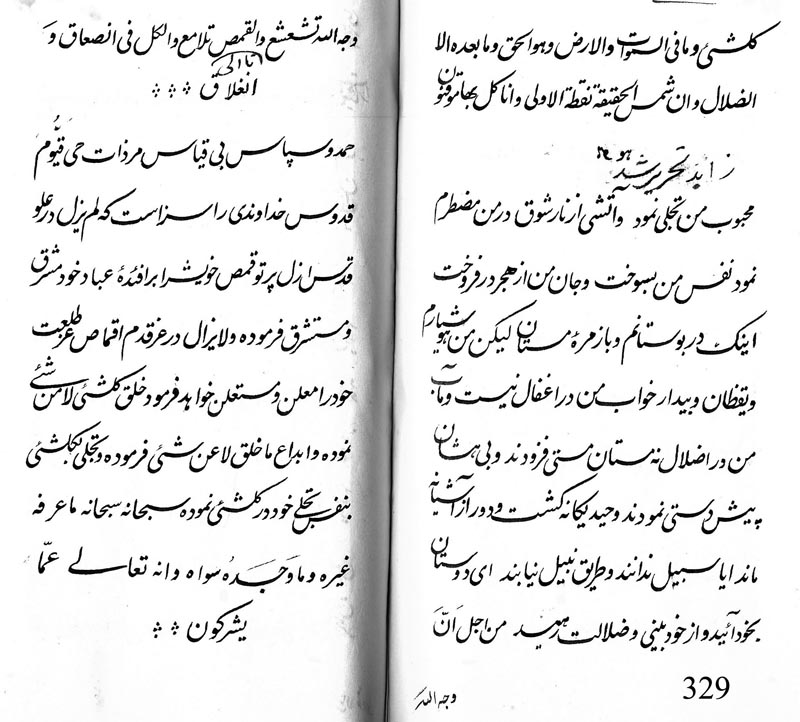 کلشئ و ما فی السموات والارض و هو الحق و ما بعده الا
الضلال و ان شمس الحقیقة نقطة الاولی و انا کل بها موقنون
هو
زاید تحریر شد
محبوب من تجلی نمود و آتشی از نار شوق در من مضطرم
نمود نفس من بسوخت و جان من از هجر در فروخت
اینک در بوستانم و با زمرهٔ مستان لیکن من هوشیارم
و یقظان و بیدار خواب من در اغفال نیست و مآب
من در اضلال نه مستان مستی فزودند و بی هشان
پیش دستی نمودند وحید یگانه گشت و دور از آشیانه
ماند ایا سبیل ندانند و طریق نبیل نیابند ای دوستان
بخود آئید و از خود بینی و ضلالت رهید من اجل انّ
وجه الله
329
وجه الله تشعشع والقمص تلامع والکل فی انصعاق و
انغلاق
حمد و سپاس بی قیاس مر ذات حی قیّوم
قدوس خداوندی را سزاست که لم یزل در علو
قدس ازل پرتو قمص خویش را بر افئدهٔ عباد خود مشرق
و مستشرق فرموده و لا یزال در عز قدم اقماص عز طلعت
خود را معلن و مستعلن خواهد فرمود خلق کلشئ لا من شئ
نموده و ابداع ما خلق لا عن شئ فرموده و تجلی بکلشئ
بنفس تجلی خود در کلشئ نموده سبحانه سبحانه ما عرفه
غیره و ما وحّده سواه و انه تعالی عمّا
یشرکون